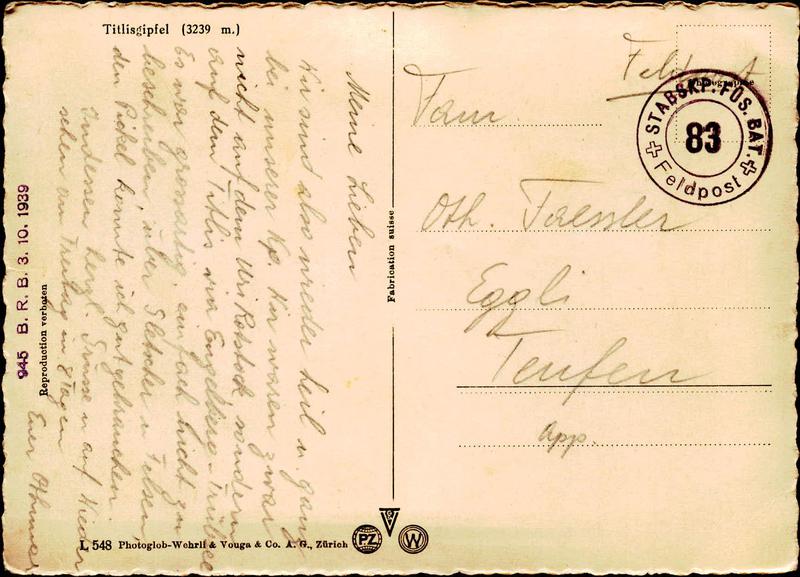 Titlisgipfel (3239 m.)
Meine Lieben
Wir sind also wieder heil u. ganz
bei unserer Kp. Wir waren zwar
nicht auf dem Urirotstock sondern
auf dem Titlis via Engelberg - Trübsee
Es war grossartig, einfach nicht zu
beschreiben, über Gletscher u Felsen,
den Pickel konnte ich gut gebrauchen.
Indessen herzl. Grüsse u auf Wieder
sehen am Freitag in 8 Tagen
Euer Othmar
Reproduction verboten
945 B. R. B. 3. 10. 1939
L 548 Photoglob-Wehrli & Vouga & Co. A. G., Zürich
PZ
W
Fabrication suisse
Feldpost
STABSKP. FÜS. BAT.
83
Feldpost
Fam.
Oth. Faessler
Eggli
Teufen
App.